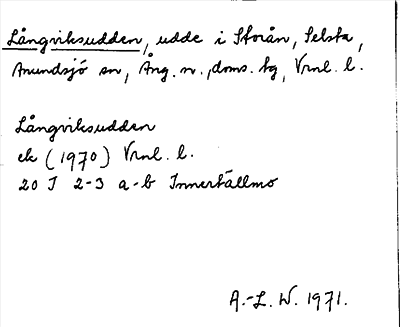 Långviksudden, udde i Storån, Selsta,
Anundsjö sn, Ång. n., doms. tg, Vrnl. l.
Långviksudden
ek (1970) Vrnl. l.
20 I 2-3 a-b Innertällmo
A.-L. W. 1971.